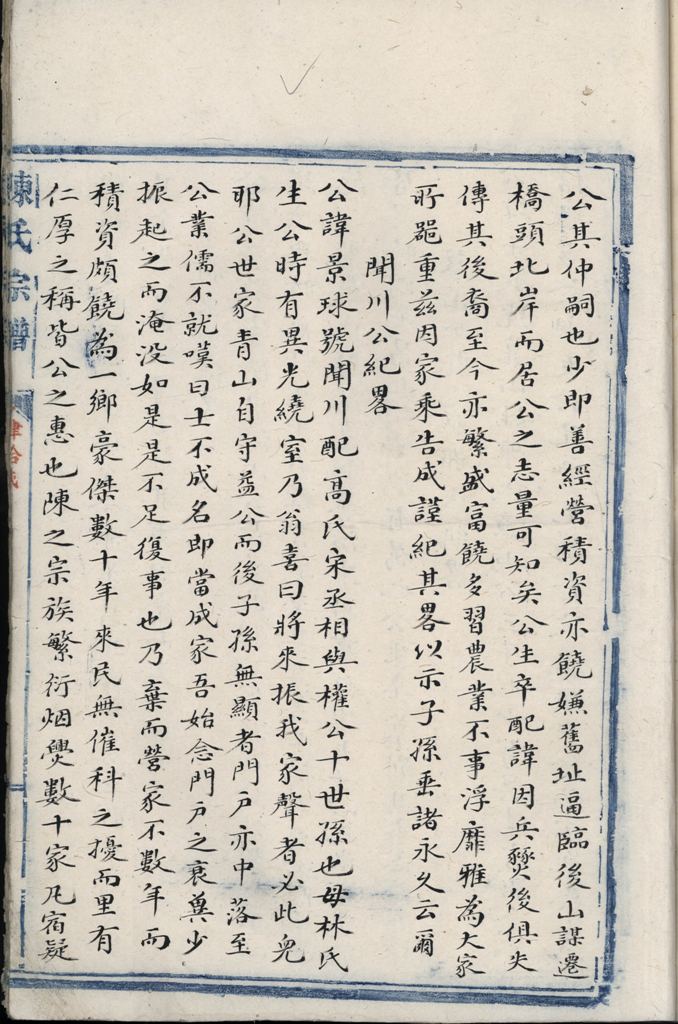 公其仲嗣也少即善經營積資亦饒嫌舊址逼臨後山謀遷
橋頭北岸而居公之志量可知矣公生卒配諱因兵燹後俱失
傳其後裔至今亦繁盛富饒多習農業不事浮靡雅為大家
所噐重茲因家乘告成謹紀其畧以示子孫垂諸永久云爾
聞川公紀畧
公諱景球號聞川配高氏宋丞相與權公十世孫也母林氏
生公時有異光繞室乃翁喜曰將來振我家聲者必此兒
耶公世家青山自守益公而後子孫無顯者門戶亦中落至
公業儒不就嘆曰士不成名即當成家吾始念門戶之衰冀少
振起之而淹没如是是不足復事也乃棄而營家不数年而
積資頗饒為一鄉豪傑數十年來民無催科之擾而里有
仁厚之稱皆公之惠也陳之宗族繁衍烟爨數十家凡宿疑
陳氏宗譜